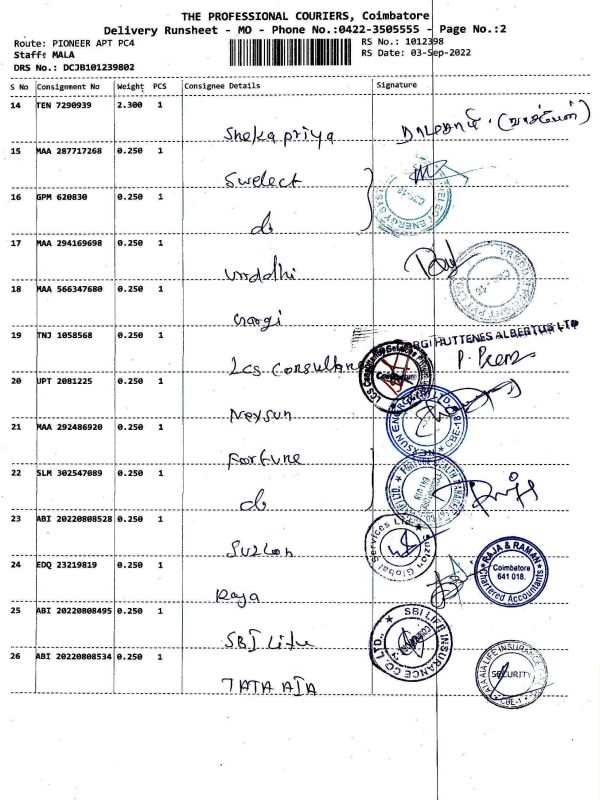 THE PROFESSIONAL COURIERS, Coimbatore
Delivery Runsheet - MO - Phone No.:0422-3505555 - Page No.:2
Route: PIONEER APT PC4
RS No.: 1012398
Staff: MALA
RS Date: 03-Sep-2022
DRS No.: DCJB101239802
S No Consignment No Weight PCS Consignee Details Signature
14 TEN 7290939 2.300 1
Shekapriya
15 MAA 287717268 0.250 1
Swelect
16 GPM 620830 0.250 1
do
17 MAA 294169698 0.250 1
Vriddhi
18 MAA 566347680 0.250 1
Gargi
GARGI HUTTENES ALBERTUS LTD
19 TNJ 1058568 0.250 1
Lcs Consultancy
20 UPT 2081225 0.250 1
Nexsun
NEXSUN ENERGY LTD CBE-18
21 MAA 292486920 0.250 1
Fortune
22 SLM 302547089 0.250 1
do
23 ABI 20220808528 0.250 1
Suzlon
Suzlon Global Services Ltd
24 EDQ 23219819 0.250 1
Raja
RAJA & RAMAN
Coimbatore
641 018.
Chartered Accountants
25 ABI 20220808495 0.250 1
SBI Life
SBI LIFE INSURANCE CO. LTD.,
26 ABI 20220808534 0.250 1
TATA AIA
TATA AIA LIFE INSURANCE
SECURITY
CBE-1